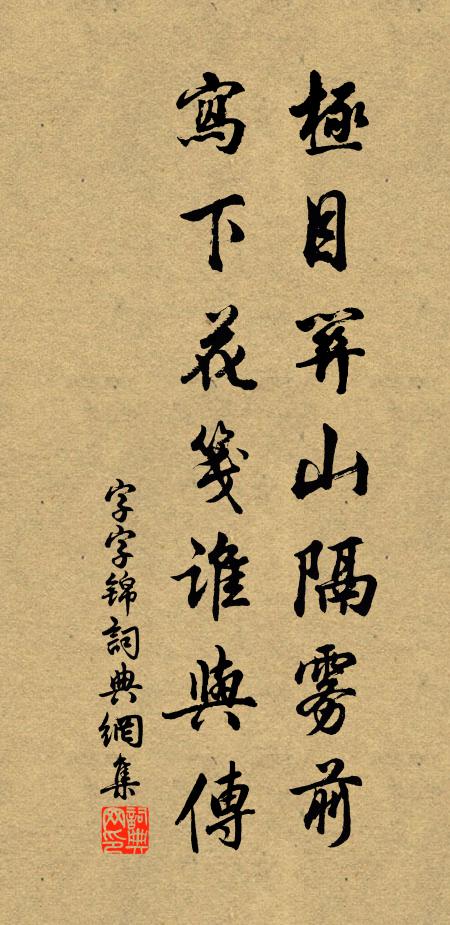 極目關山隔霧前
寫下花箋誰與傳
字字錦詞典網集
詞典
网印